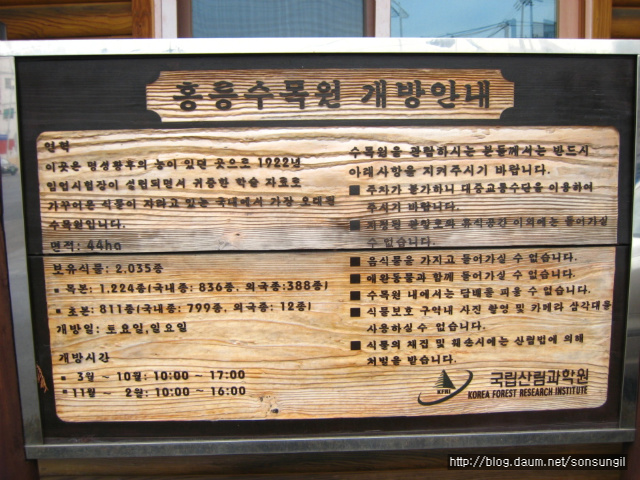 홍릉수목원 개방안내
연혁
이곳은 명성황후의 능이 있던 곳으로 1922년
임업시험장이 설립되면서 귀중한 학술 자료로
가꾸어온 식물이 자라고 있는 국내에서 가장 오래된
수목원입니다.
면적: 44ha
보유식물: 2,035종
목본: 1,224종(국내종: 836종, 외국종:388종)
초본: 811종(국내종: 799종, 외국종: 12종)
개방일: 토요일,일요일
개방시간
3월 ~ 10월: 10:00 ~ 17:00
11월 ~ 2월: 10:00 ~ 16:00
수목원을 관람하시는 분들께서는 반드시
아래사항을 지켜주시기 바랍니다.
■ 주차가 불가하니 대중교통수단을 이용하여
주시기 바랍니다.
■ 지정된 관람로와 휴식공간 이외에는 들어가실
수 없습니다.
■ 음식물을 가지고 들어가실 수 없습니다.
■ 애완동물과 함께 들어가실 수 없습니다.
■ 수목원 내에서는 담배를 피울 수 없습니다.
■ 식물보호 구역내 사진 촬영 및 카메라 삼각대를
사용하실수 없습니다.
■ 식물의 채집 및 훼손시에는 산림법에 의해
처벌을 받습니다.
KFRI
국립산림과학원
KOREA FOREST RESEARCH INSTITUTE
http://blog.daum.net/sonsungil